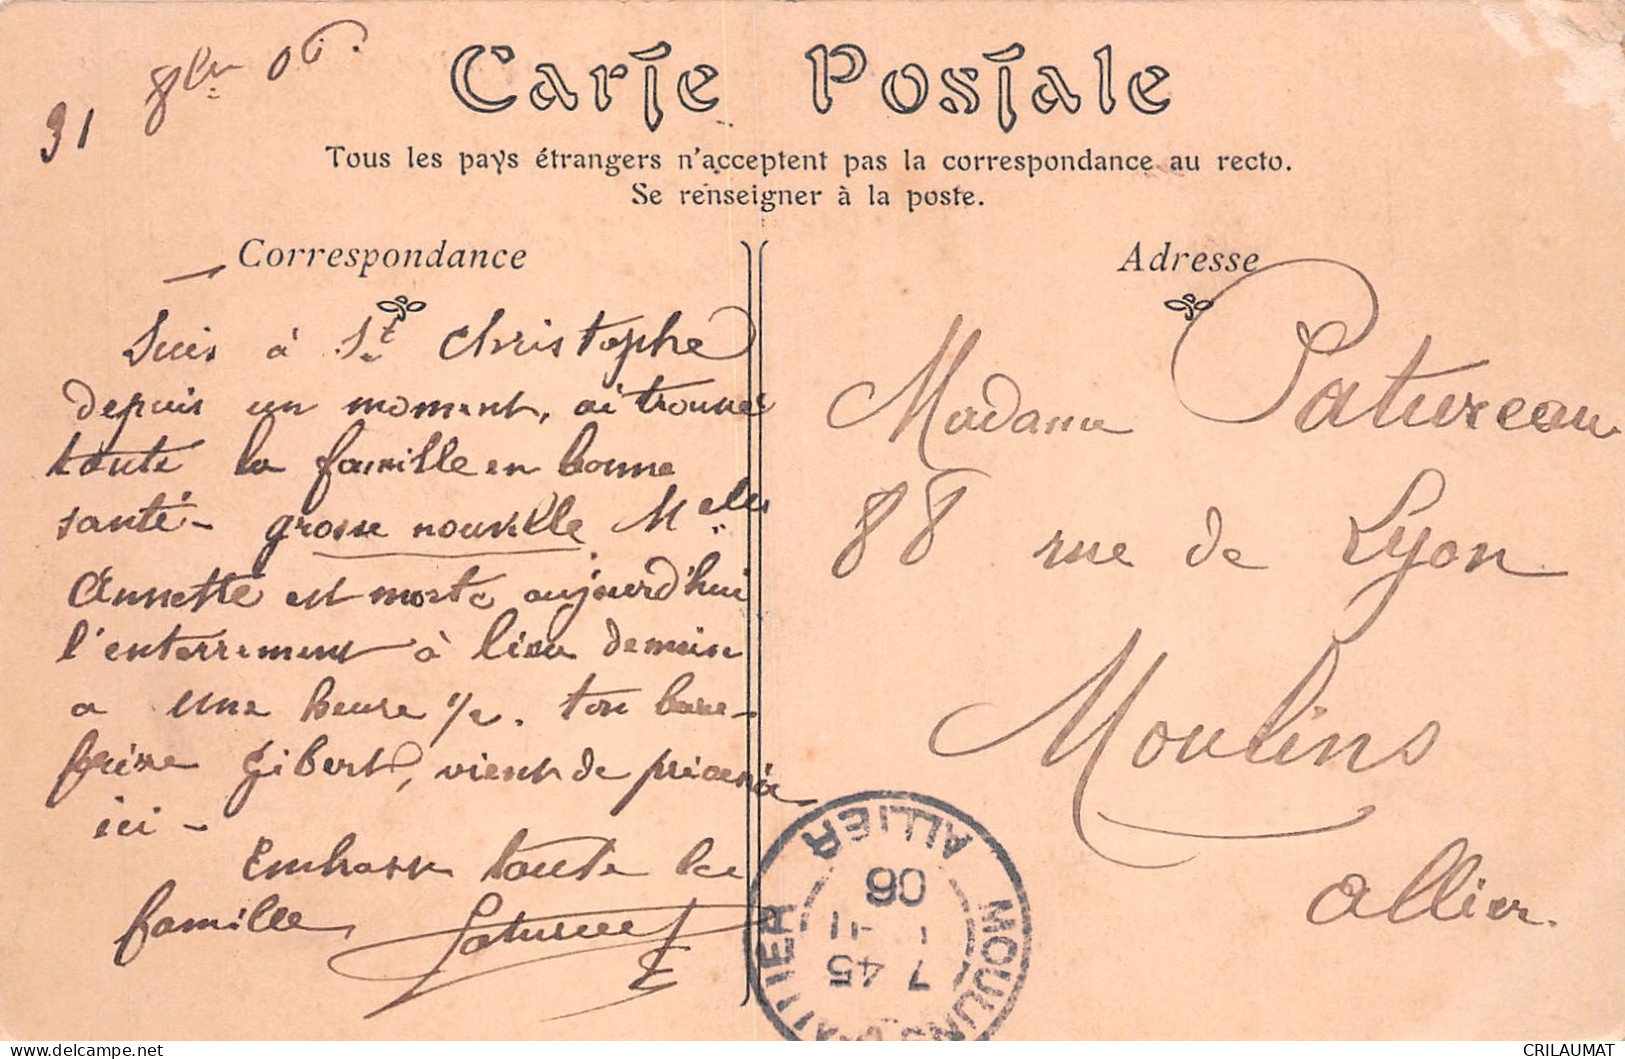 31 8bre 06.
Carte Postale
Tous les pays étrangers n'acceptent pas la correspondance au recto.
Se renseigner à la poste.
Correspondance
Suis à St Christophe
depuis un moment, ai trouvé
toute la famille en bonne
santé - grosse nouvelle Melle
Annette est morte aujourd'hui
l'enterrement à lieu demain
a une heure 1/2. ton beau-
frère Gibert, vient de
ici -
Embrasse toute la
famille,
Patureau
Adresse
Madame Patureau
88 rue de Lyon
Moulins
Allier.
MOULINS ALLIER
7 45
1 - 11
06
CRILAUMAT